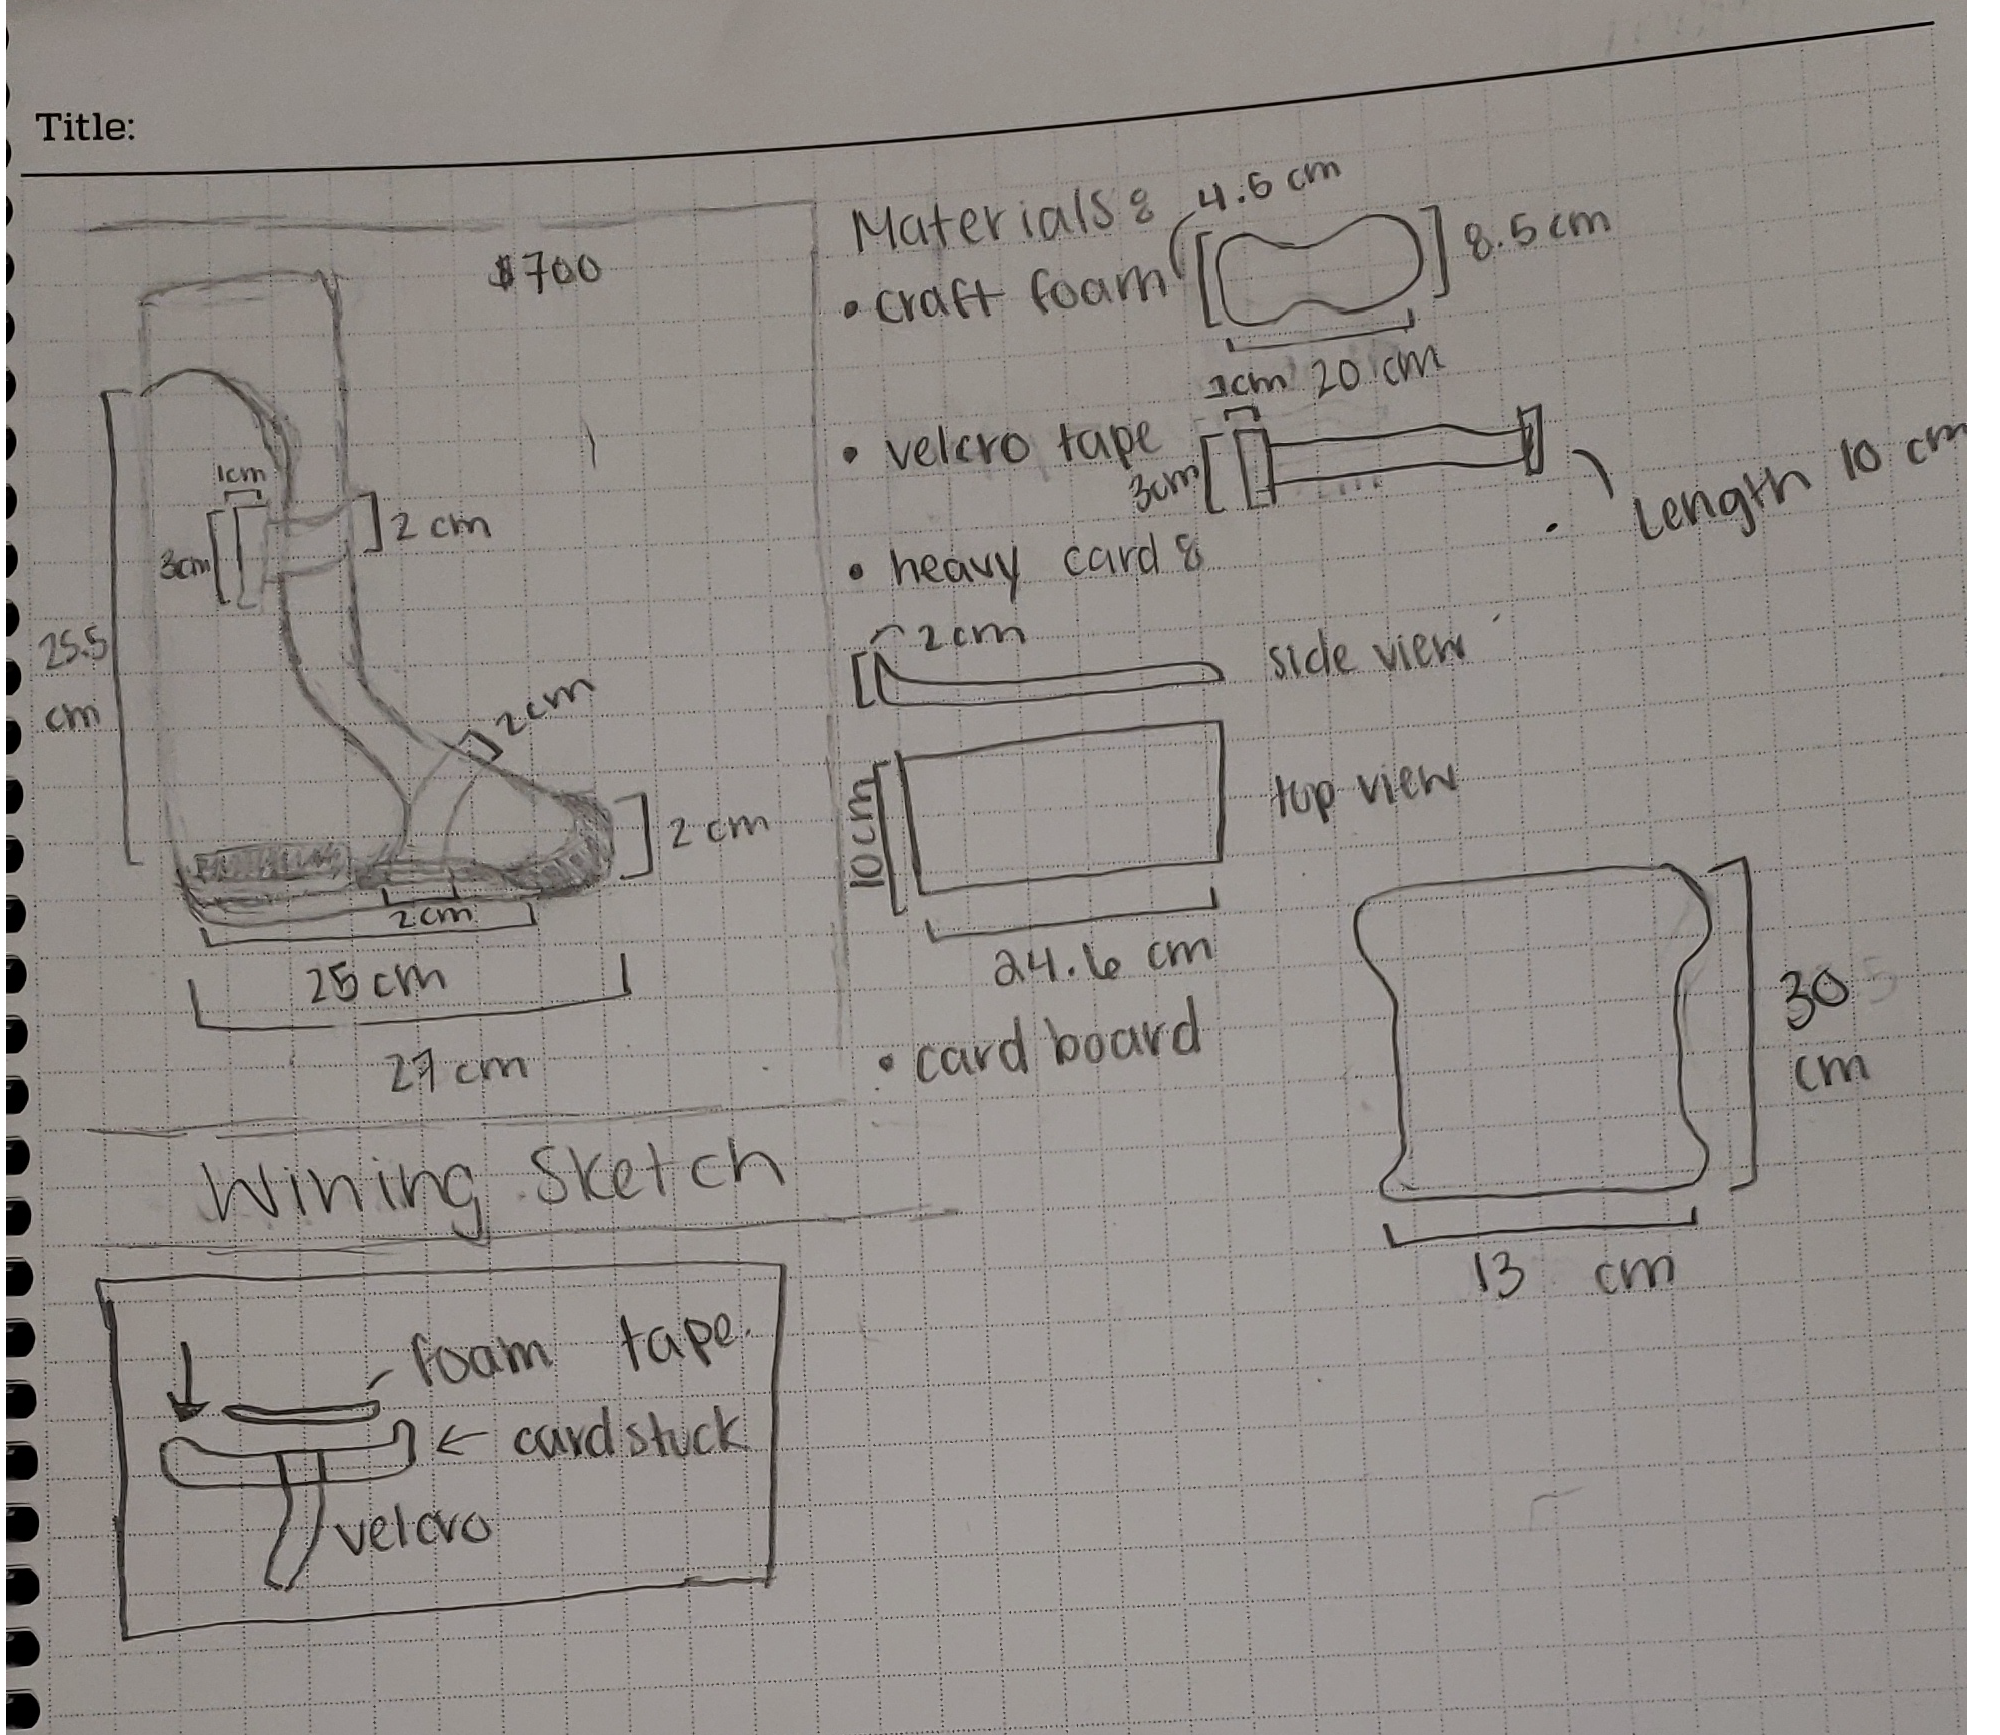 Title:
$700
25.5
cm
1cm
3cm
2 cm
2cm
2 cm
2cm
25 cm
27 cm
Wining Sketch
foam tape.
cardstuck
velcro
Materials:
• craft foam
4.6 cm
8.5 cm
20 cm
• velcro tape
3cm
Length 10 cm
• heavy card:
2cm
side view
10cm
top view
24.6 cm
• card board
30
cm
13 cm